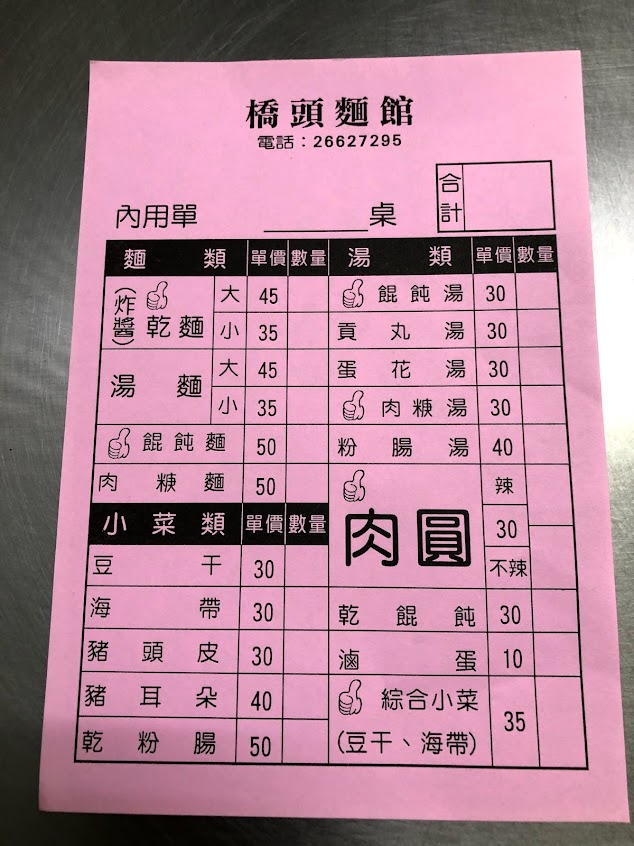 橋頭麵館
電話：26627295
合計
內用單 ________桌
麵類 單價 數量
(炸醬)乾麵 大 45
小 35
湯麵 大 45
小 35
餛飩麵 50
肉焿麵 50
小菜類 單價 數量
豆干 30
海帶 30
豬頭皮 30
豬耳朵 40
乾粉腸 50
湯類 單價 數量
餛飩湯 30
貢丸湯 30
蛋花湯 30
肉焿湯 30
粉腸湯 40
肉圓 辣
30
不辣
乾餛飩 30
滷蛋 10
綜合小菜
(豆干、海帶) 35